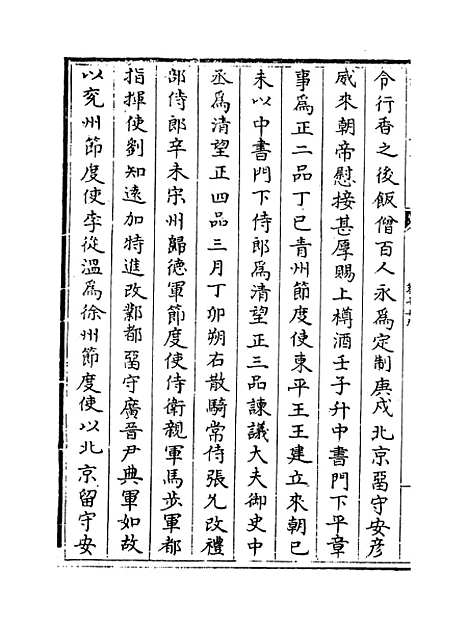 令行香之後飯僧百人永為定制庚戌北京畱守安彦
威來朝帝慰接甚厚賜上樽酒壬子升中書門下平章
事為正二品丁巳青州節度使東平王王建立來朝已
未以中書門下侍郎為清望正三品諫議大夫御史中
丞爲清望正四品三月丁卯朔右散騎常侍張允改禮
部侍郎辛未宋州歸德軍節度使侍衛親軍馬步軍都
指揮使劉知遠加特進改鄴都畱守廣晉尹典軍如故
以兖州節度使李從溫爲徐州節度使以北京留守安